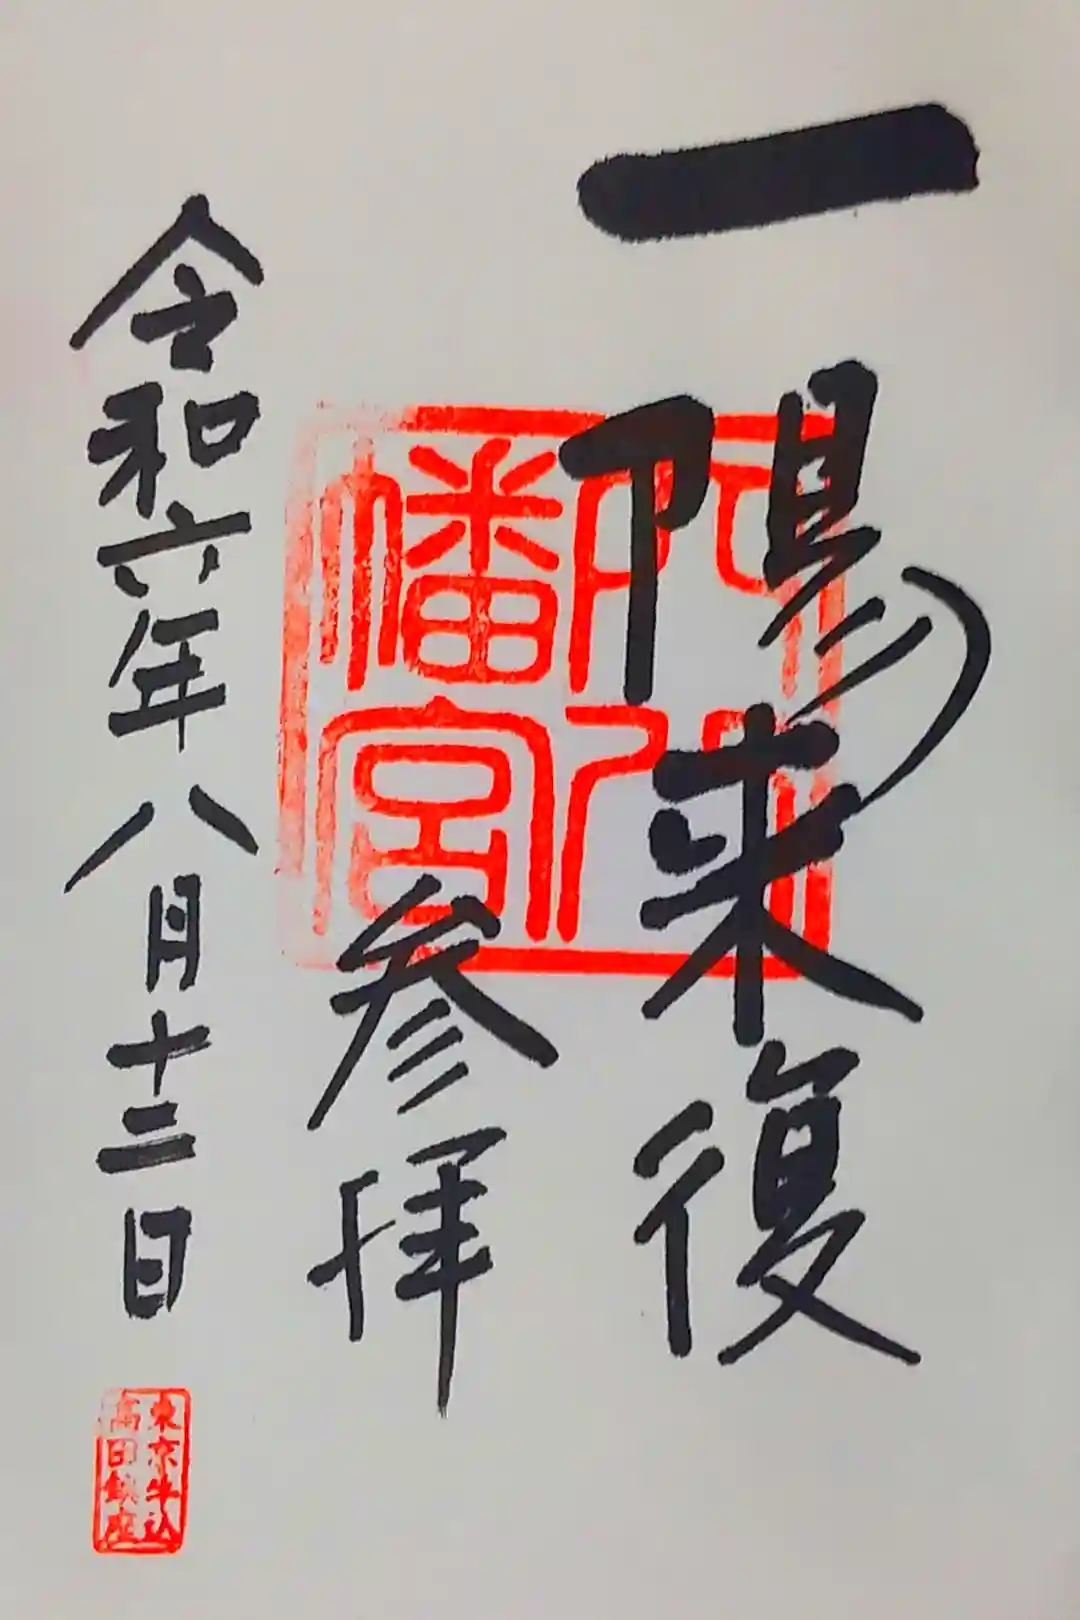 一陽来復
穴八幡宮
参拝
令和六年八月十二日
東京牛込
高田鎮座